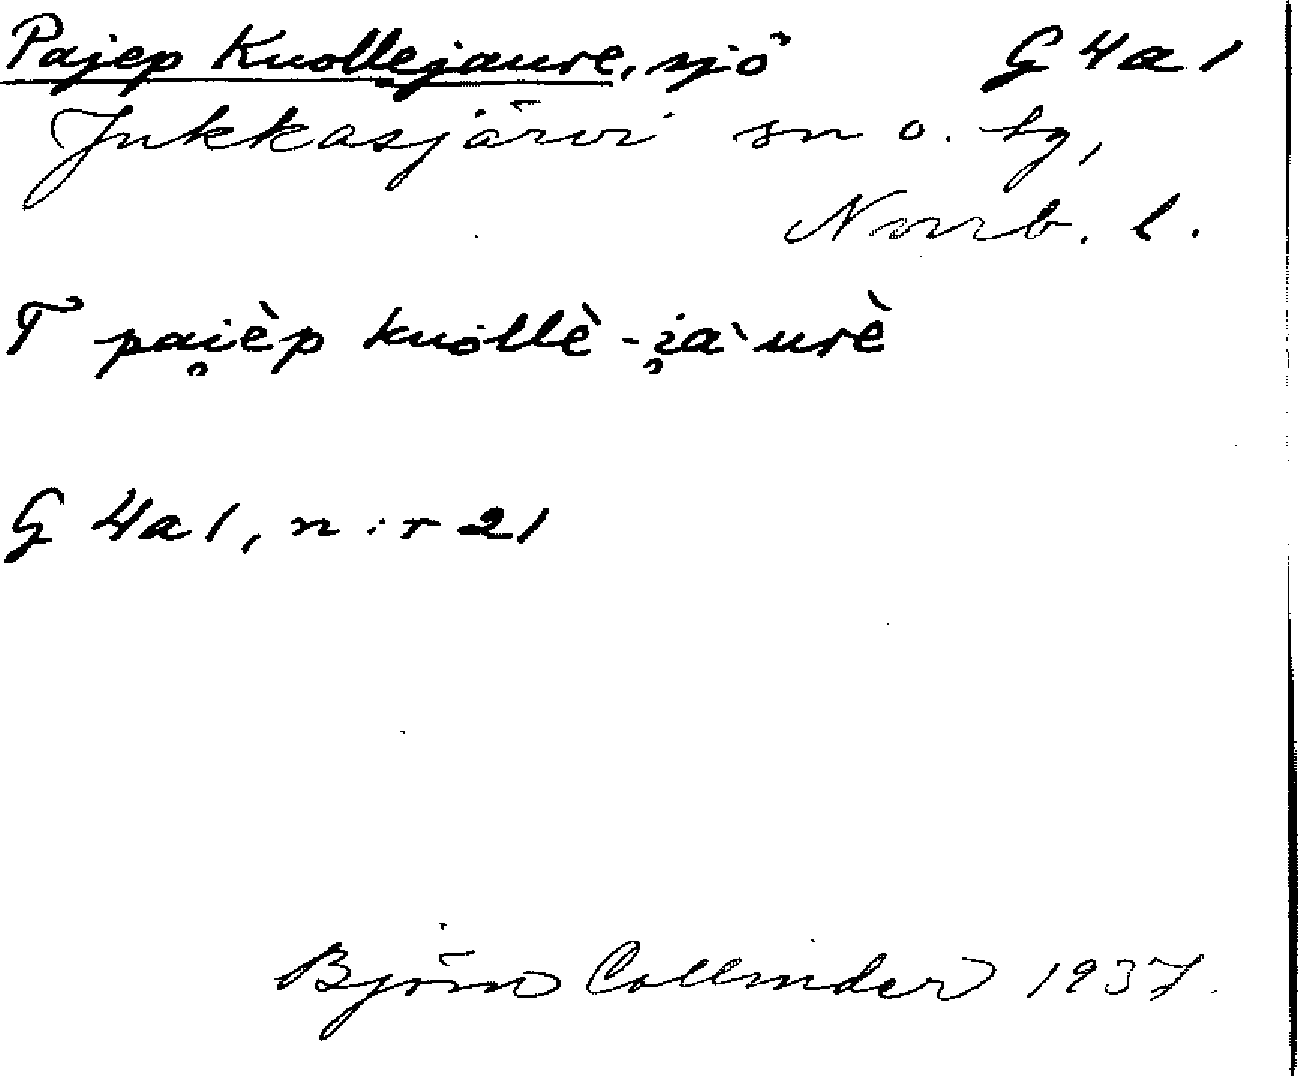 Pajep Kuollejaure, sjö G 4a1
Jukkasjärvi sn o. tg,
Norrb. l.
T pai̯èp kuollè-i̯àurè
G 4a1, n:r 21
Björn Collinder 1937.